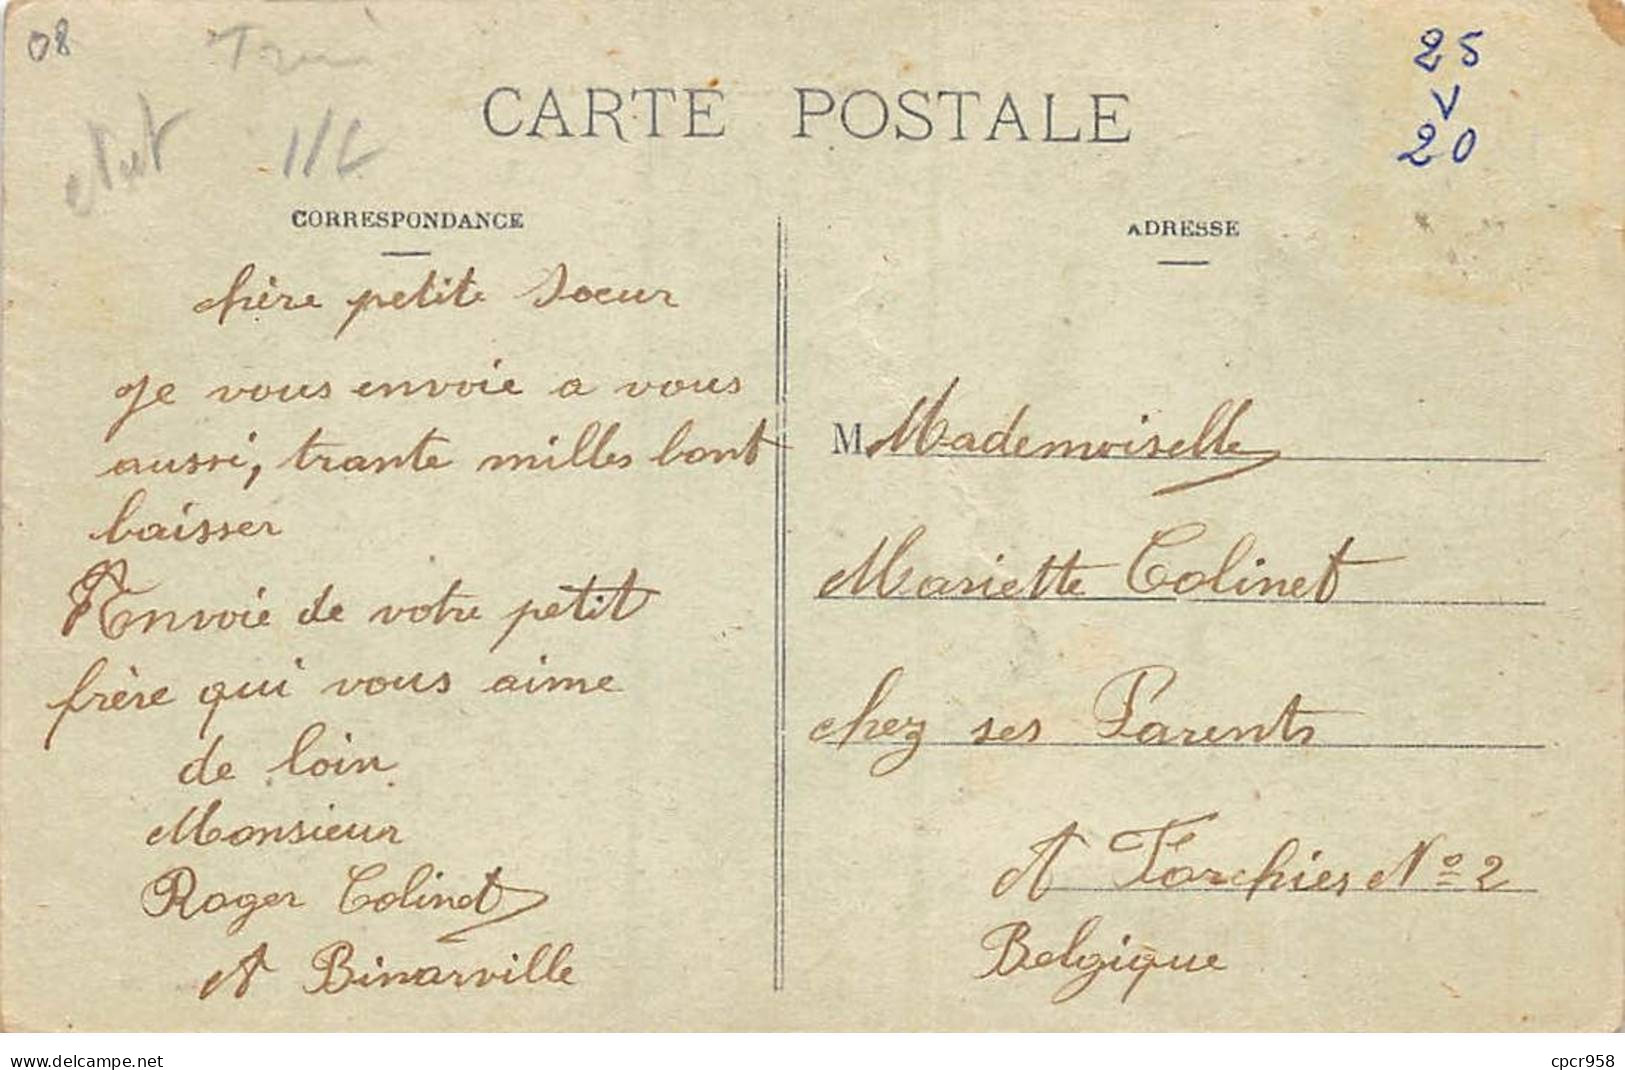 08
25
V
20
CARTE POSTALE
CORRESPONDANCE
chère petite Soeur
Je vous envoie a vous
aussi, trante milles bont
baisser
Envoie de votre petit
frère qui vous aime
de loin
Monsieur
Roger Colinet
A Binarville
ADRESSE
M Mademoiselle
Mariette Colinet
chez ses Parents
A Forchies No 2
Belgique
www.delcampe.net
cpcr958